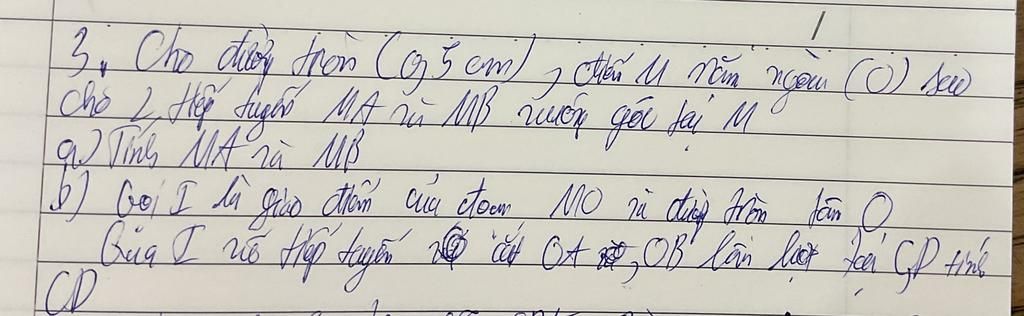 3. Cho đường tròn (O, 5 cm), điểm M nằm ngoài (O) sao
cho 2 tiếp tuyến MA và MB vuông góc tại M
a) Tính MA và MB
b) Gọi I là giao điểm của đoạn MO và đường tròn tâm O
Qua I vẽ tiếp tuyến cắt OA, OB lần lượt tại C, D tính
CD